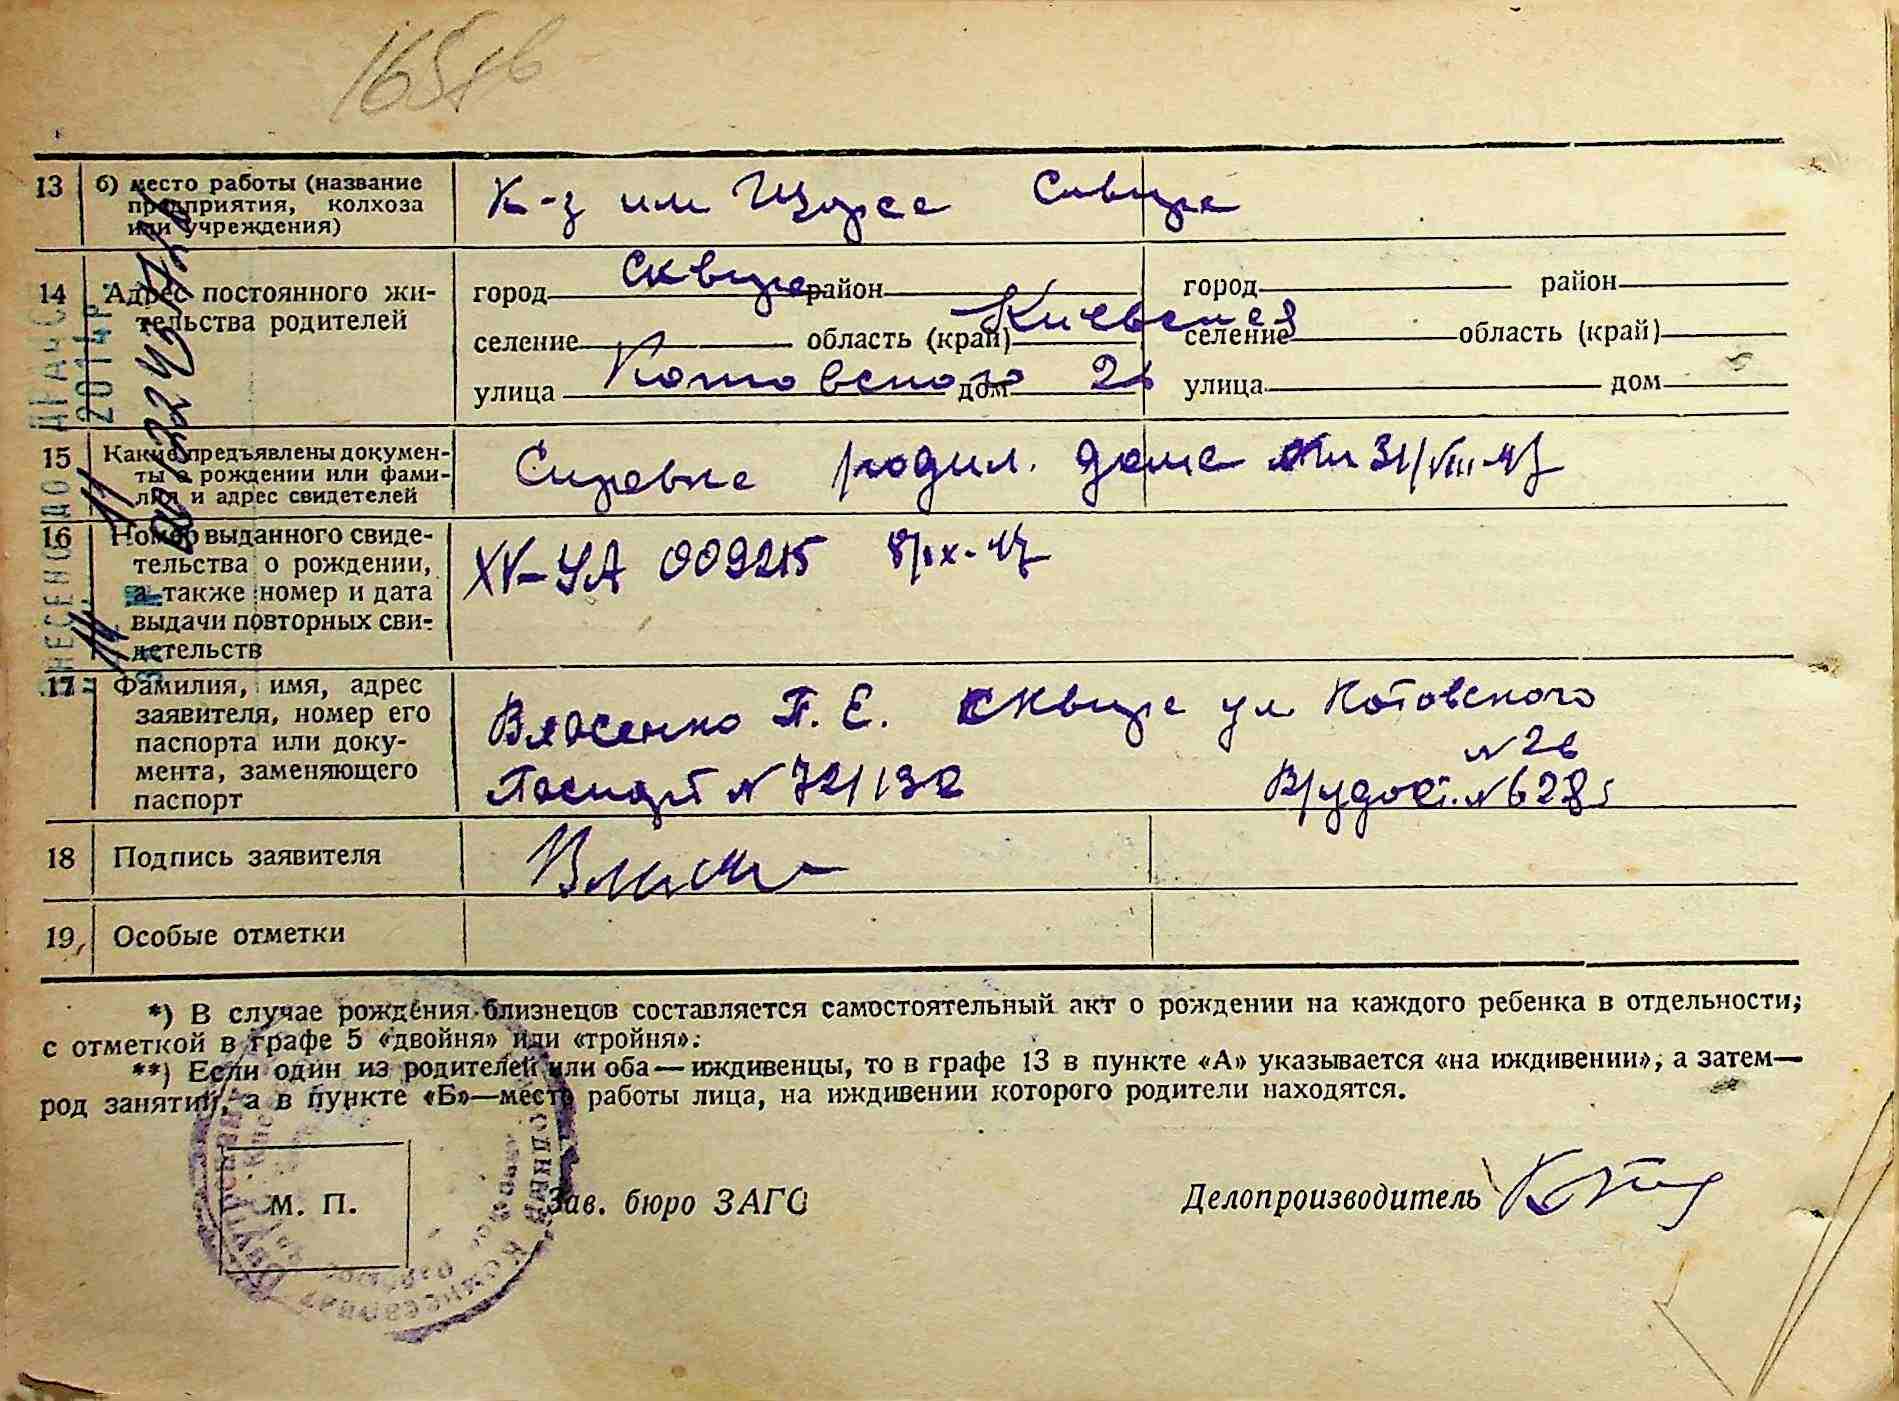 13 б) место работы (название
предприятия, колхоза
или учреждения)
К-з им Щорса Сквира
14 Адрес постоянного жи-
тельства родителей
город Сквира район
селение область (край) Киевская
улица Котовского дом 26
город район
селение область (край)
улица дом
15 Какие предъявлены докумен-
ты о рождении или фами-
лия и адрес свидетелей
Справка родил. дома от 31/VIII-47
16 Номер выданного свиде-
тельства о рождении,
а также номер и дата
выдачи повторных сви-
детельств
XV-УА 009215 8/IX-47
17 Фамилия, имя, адрес
заявителя, номер его
паспорта или доку-
мента, заменяющего
паспорт
Власенко П. Е. Сквира ул Котовского
№ 26
Паспорт № 721132
18 Подпись заявителя
19 Особые отметки
*) В случае рождения близнецов составляется самостоятельный акт о рождении на каждого ребенка в отдельности;
с отметкой в графе 5 «двойня» или «тройня».
**) Если один из родителей или оба — иждивенцы, то в графе 13 в пункте «А» указывается «на иждивении», а затем—
род занятий, а в пункте «Б»—место работы лица, на иждивении которого родители находятся.
М. П.
Зав. бюро ЗАГС
Делопроизводитель
2014